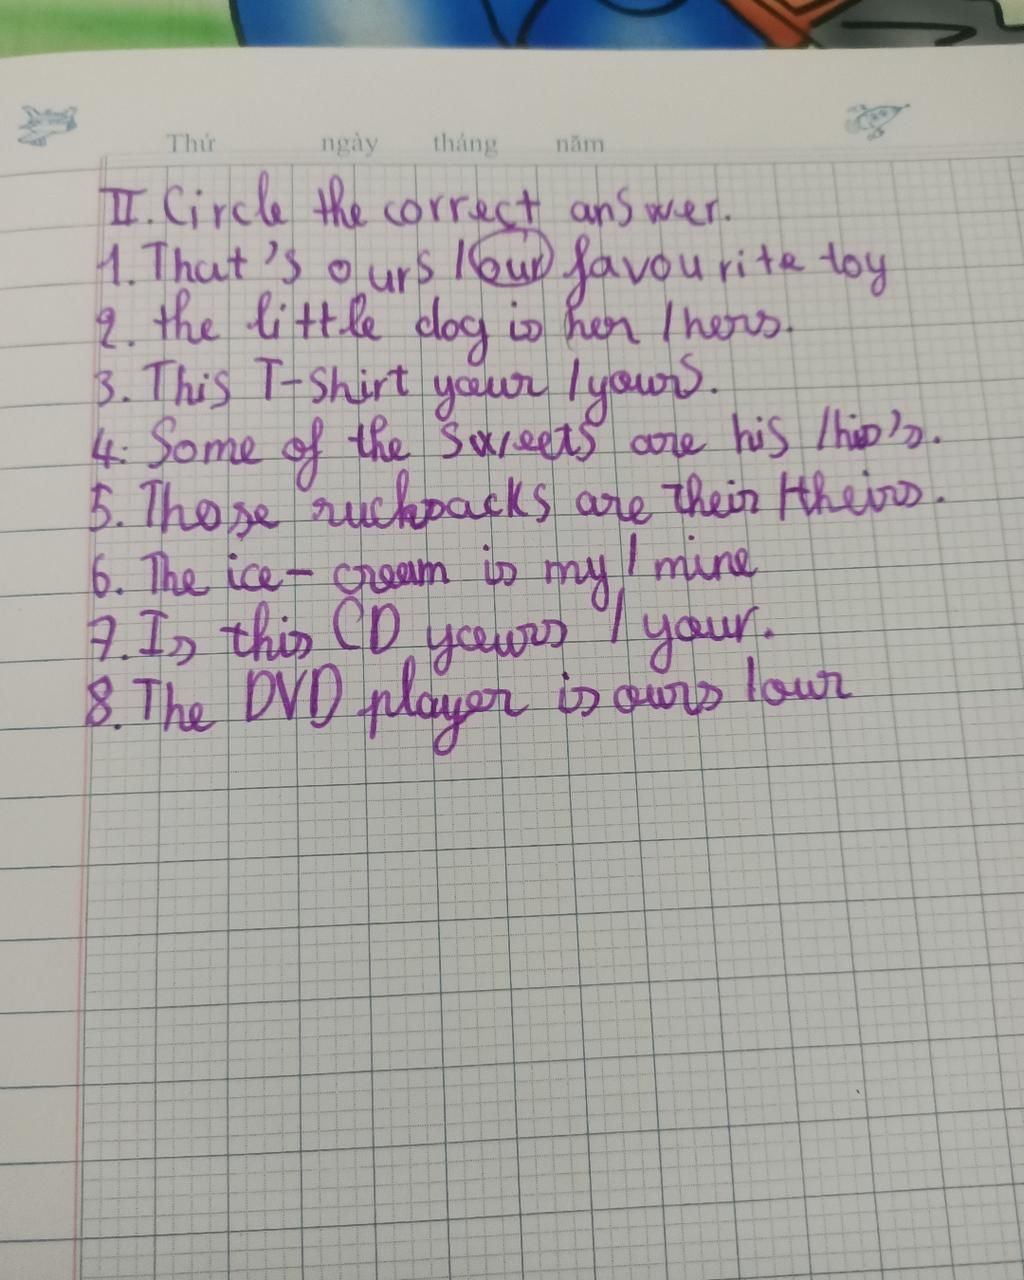 Thứ ngày tháng năm
II. Circle the correct answer.
1. That's ours / our favourite toy
2. the little dog is her / hers.
3. This T-Shirt your / yours.
4. Some of the sweets are his / his's.
5. Those ruckpacks are their / theirs.
6. The ice-cream is my / mine
7. Is this CD yours / your.
8. The DVD player is ours / our